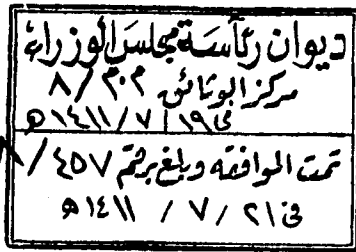 ديوان رئاسة مجلس الوزراء
مركز الوثائق م٠٣/٨
في ١٩/٧/١٤١١ه
تمت الموافقة وبلغ برقم ٤٥٧/٨
في ٢١/٧/١٤١١ه